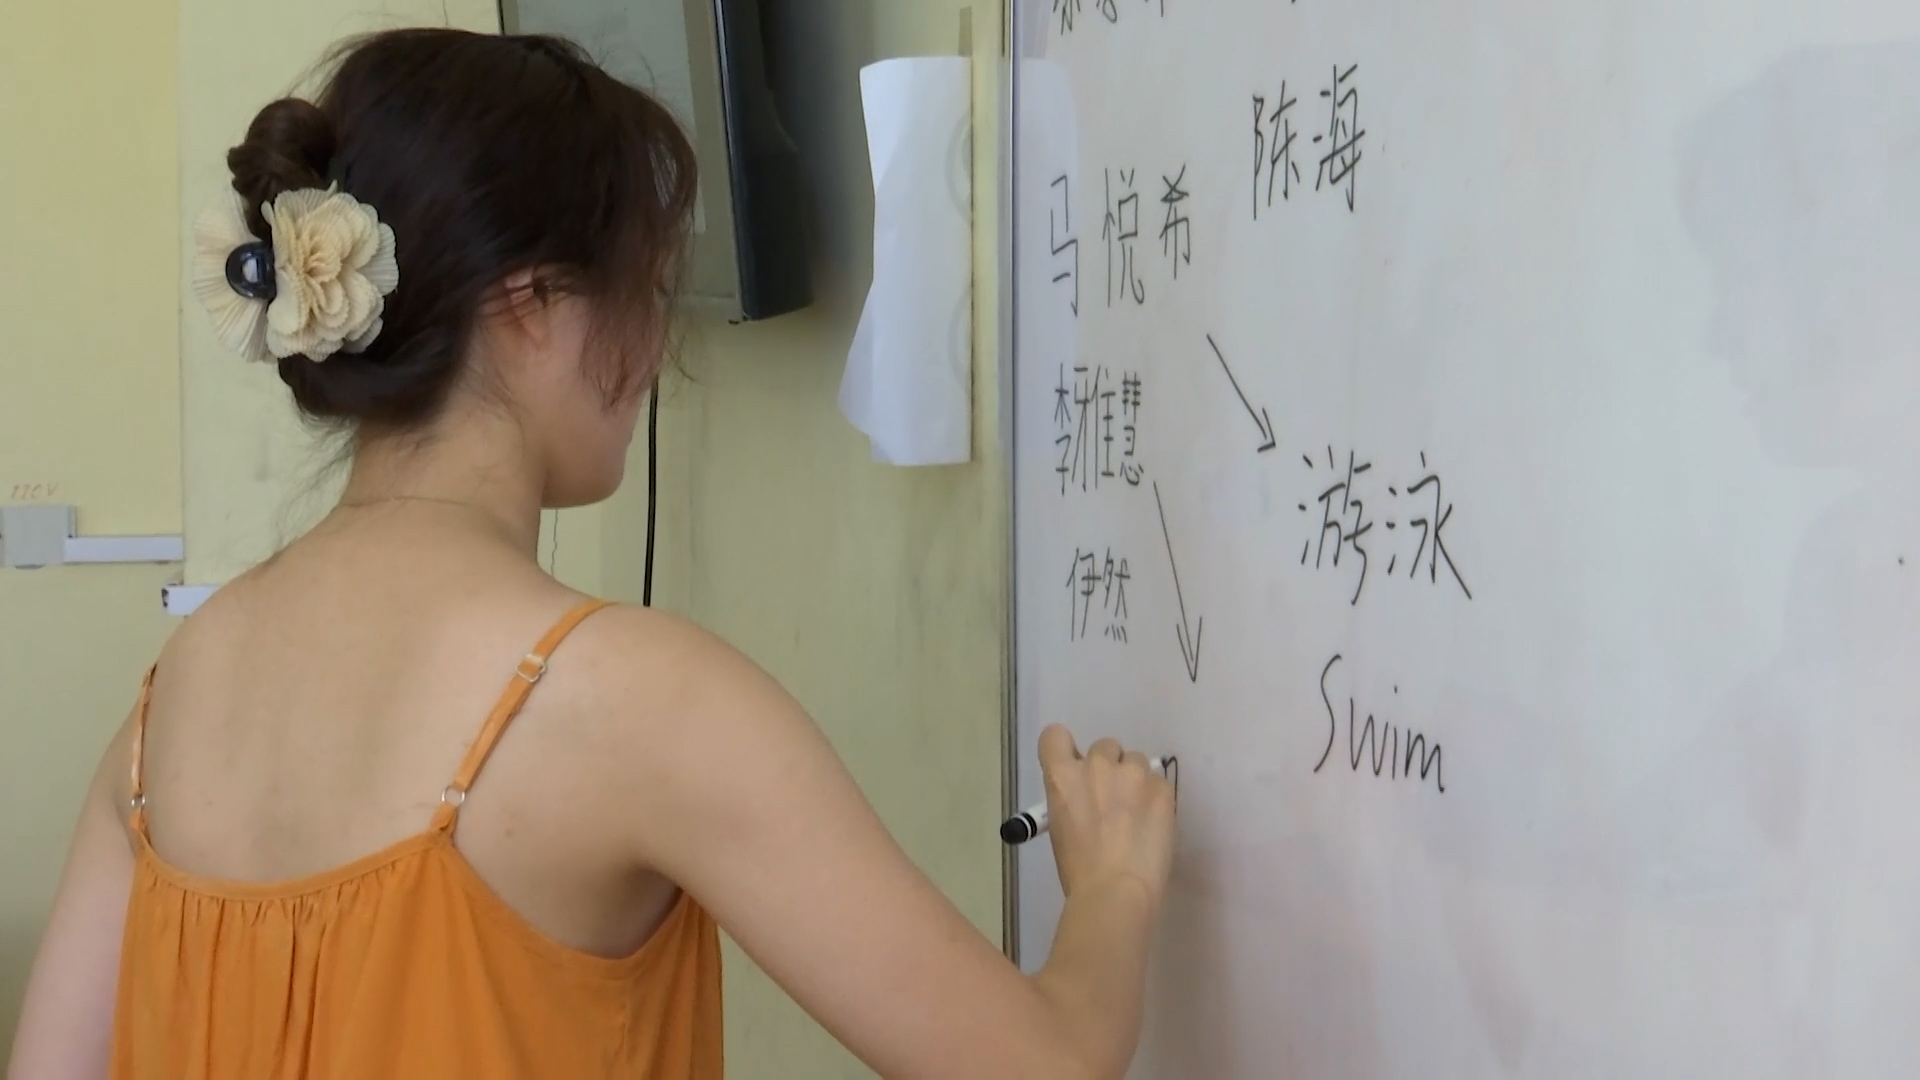 陈海
马悦希
李雅慧
游泳
伊然
Swim
220V